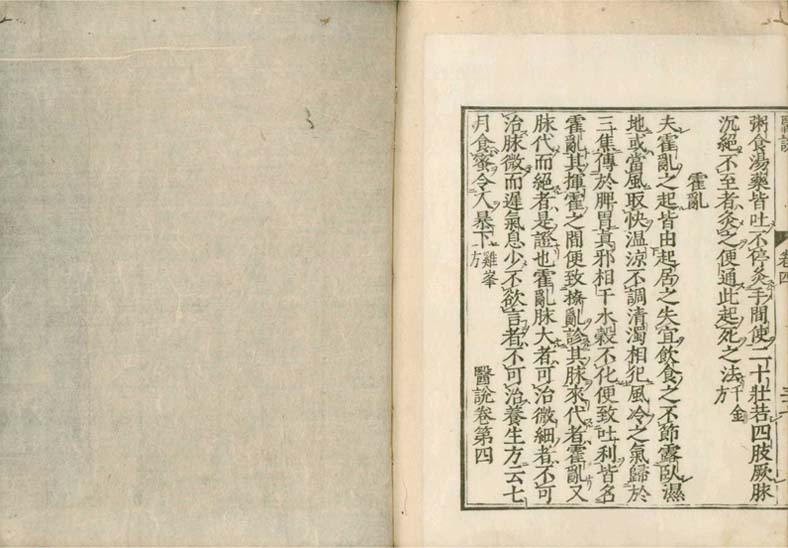 粥食湯藥皆吐不停灸手間使二十壯若四肢厥脉
沉絶不至者灸之便通此起死之法千金方
霍亂
夫霍亂之起皆由起居之失宜飲食之不節露臥濕
地或當風取快温涼不調清濁相犯風冷之氣歸於
三焦傳於脾胃真邪相干水穀不化便致吐利皆名
霍亂其揮霍之間便致撩亂診其脉來代者霍亂又
脉代而絶者是證也霍亂脉大者可治微細者不可
治脉微而遲氣息少不欲言者不可治養生方云七
月食蜜令人暴下雞峯方
醫說卷第四
醫說
卷四